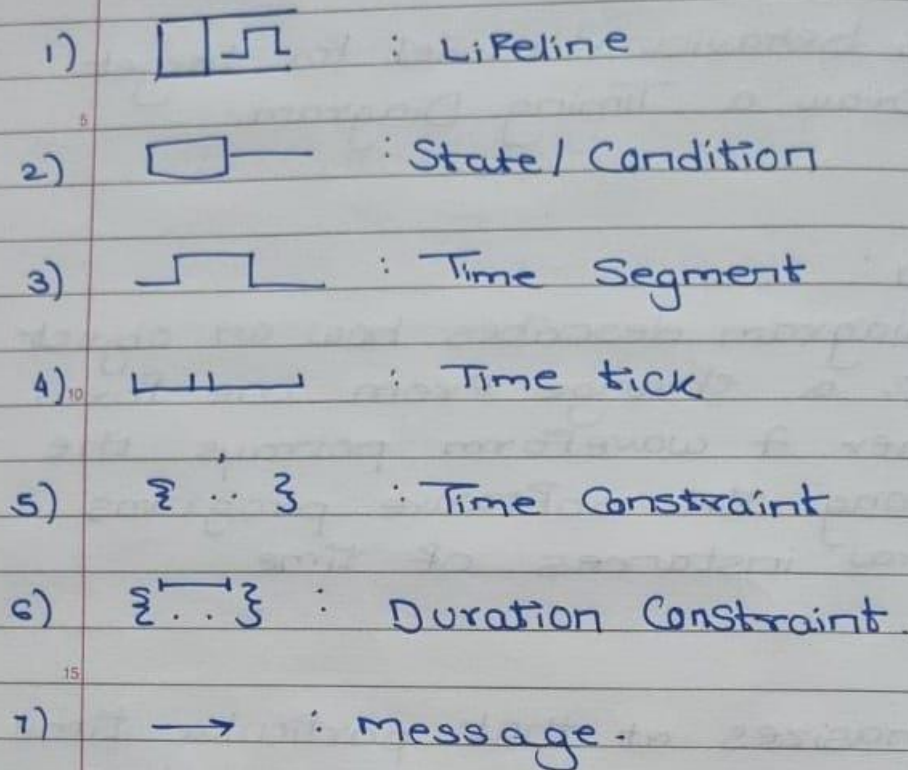 1) : Lifeline
5
2) : State / Condition
3) : Time Segment
4) : Time tick
10
5) { .. } : Time Constraint
6) { .. } : Duration Constraint.
15
7) → : Message.